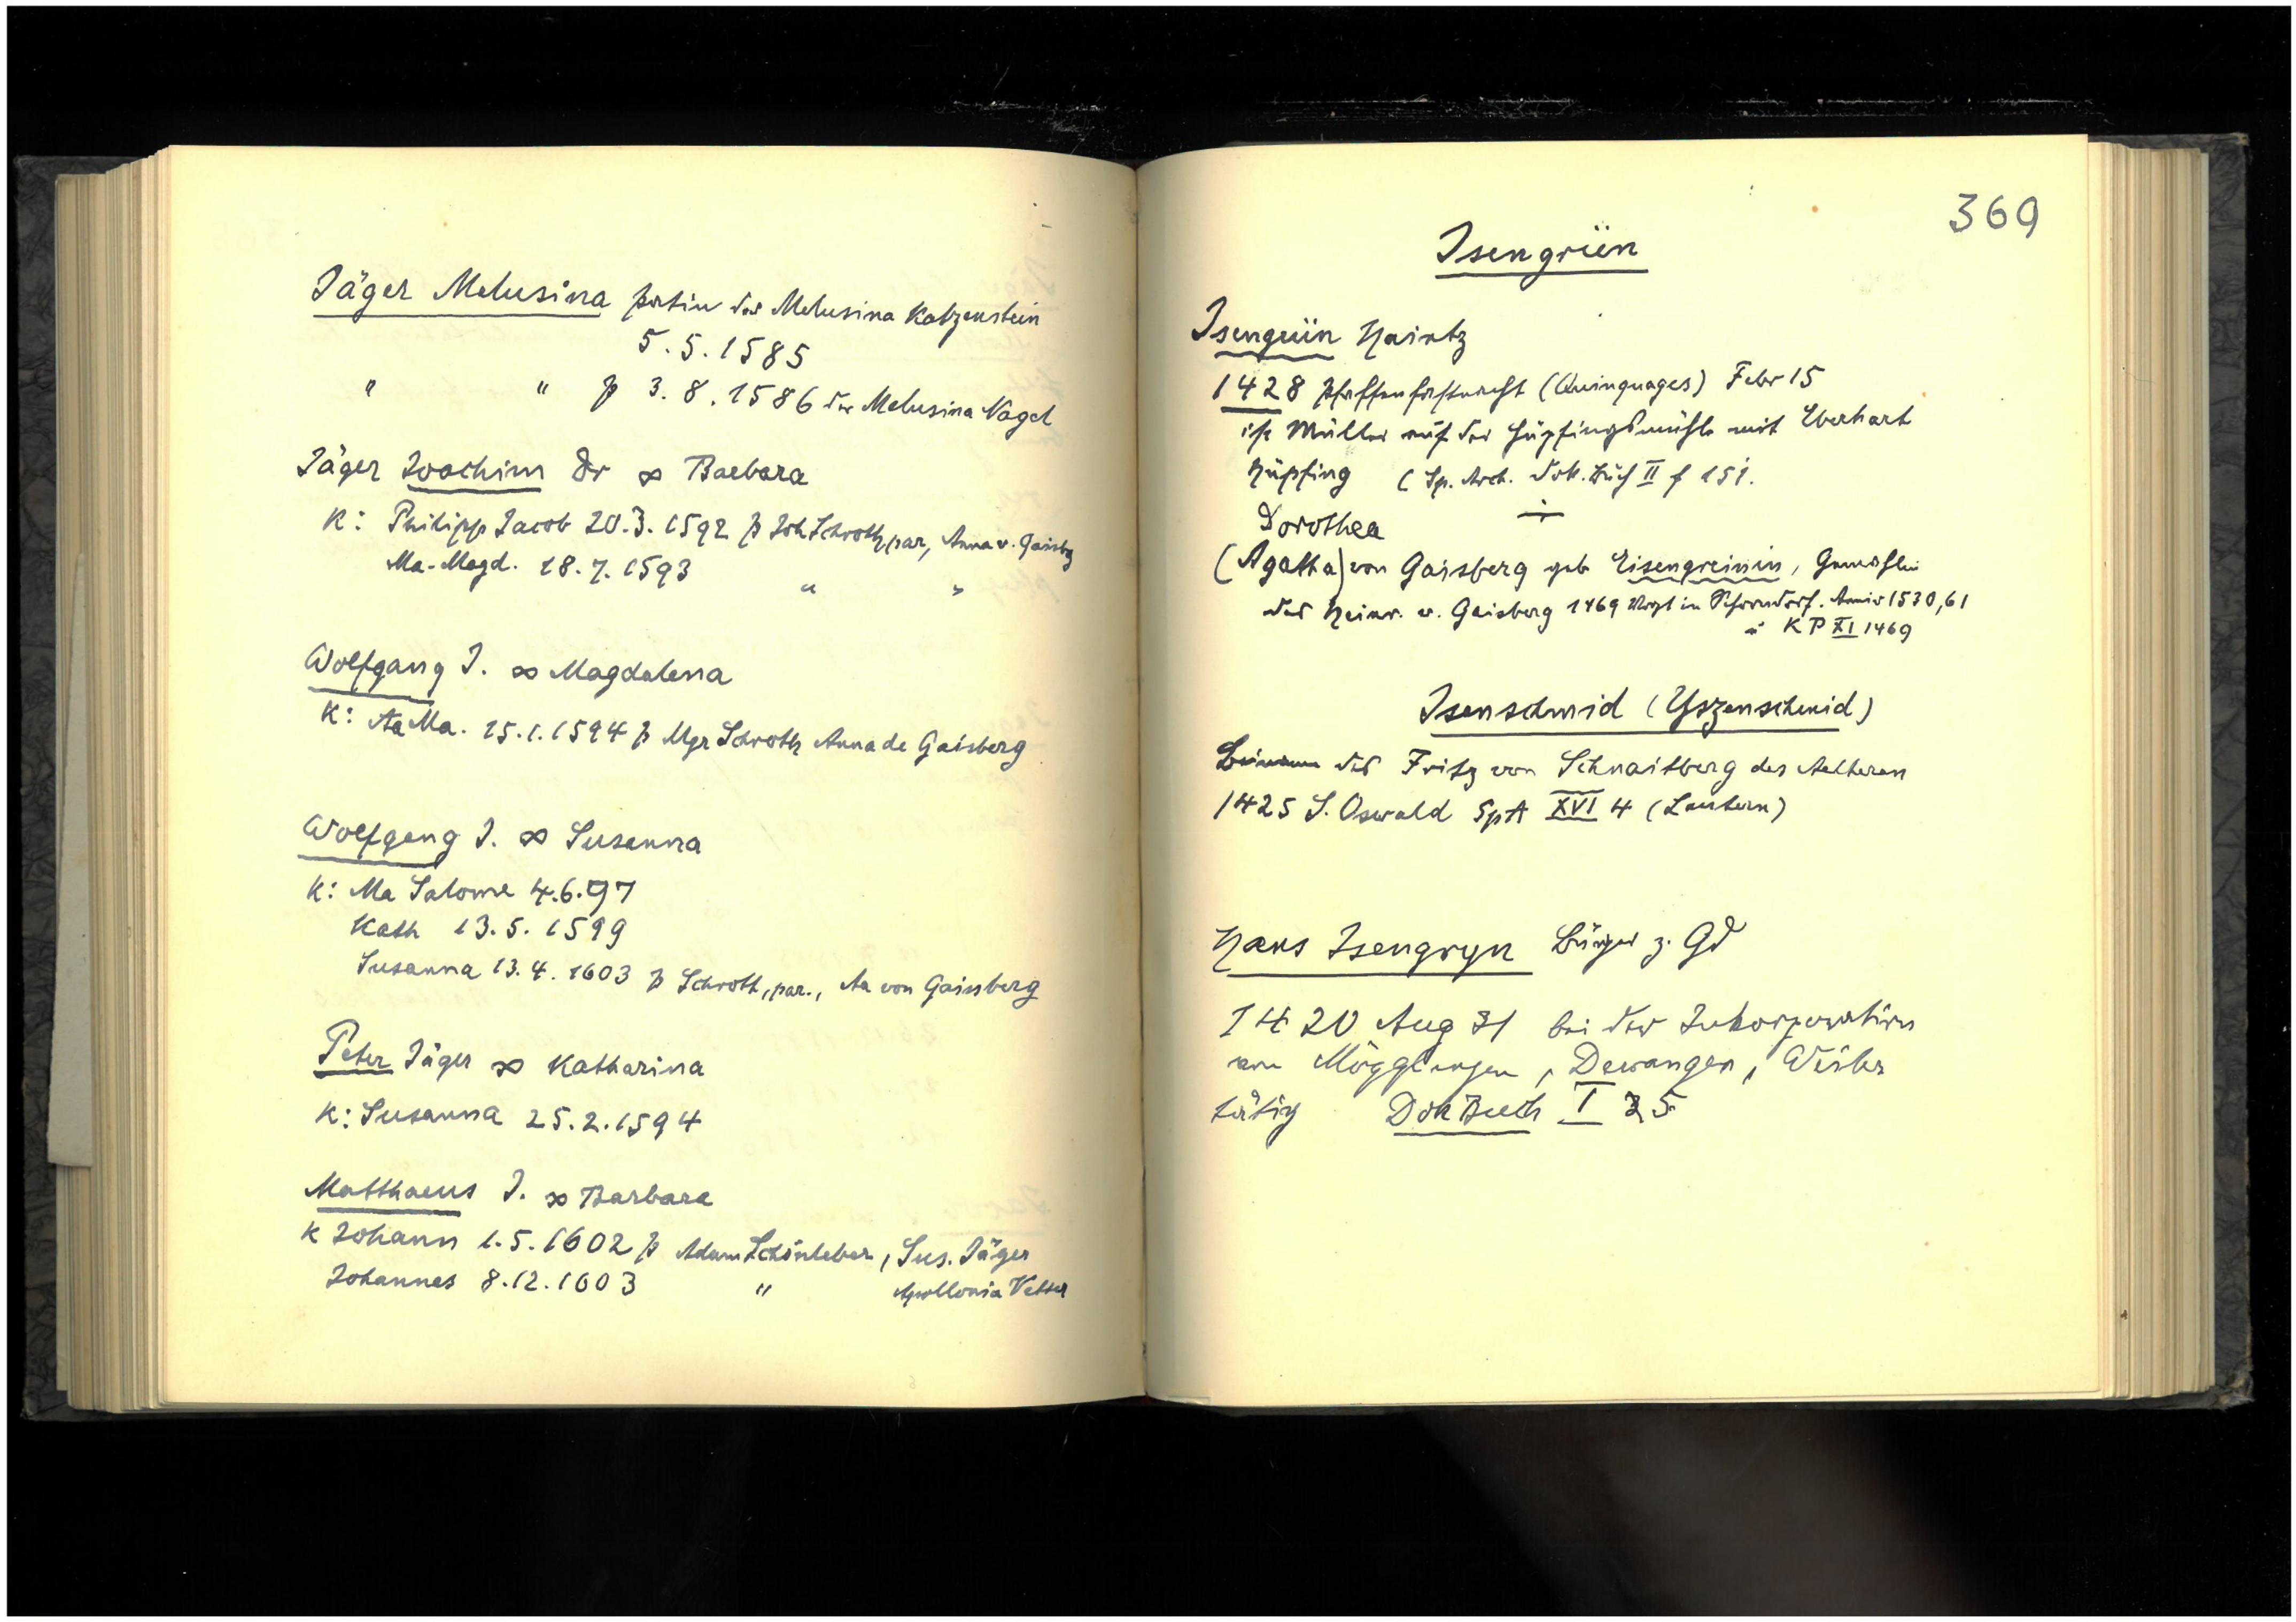 Jäger Melusina patin der Melusina Katzenstein
5.5.1585
" " p 3.8.1586 der Melusina Nagel
Jäger Joachim Dr ∞ Barbara
K: Philipp Jacob 20.3.1592 p Joh Schroth, par, Anna v. Gaisbg
Ma-Magd. 18.7.1593 " "
Wolfgang J. ∞ Magdalena
K: Aa Ma. 15.1.1594 p Mgr Schroth Anna de Gaisberg
Wolfgang J. ∞ Susanna
K: Ma Salome 4.6.97
Kath 13.5.1599
Susanna 13.4.1603 p Schroth, par., Aa von Gaissberg
Peter Jäger ∞ Katharina
K: Susanna 25.2.1594
Matthaeus J. ∞ Barbara
K Johann 1.5.1602 p Adam Schönleber, Sus. Jäger
Johannes 8.12.1603 " Apollonia Vetter
369
Isengrün
Isengrün Haintz
1428 Pfaffenfastnacht (Quinquages) Febr 15
ist Müller auf der Hüpfingsmühle mit Eberhart
Hüpfing (Sp. Arch. Dok. Buch II f 151.
Dorothea
(Agatha) von Gaisberg geb Eisengreinin, Gemahlin
des Heinr. v. Gaisberg 1469 Vogt in Schorndorf. 1530, 61
u KP XI 1469
Isenschmid (Yszenschmid)
Beiname des Fritz von Schnaitberg des Aelteren
1425 S. Oswald SpA XVI 4 (Lautern)
Hans Isengryn Bürger z. Gd
1420 Aug 31 bei der Inkorporation
von Mögglingen, Dewangen, Weiler
tätig Dok Buch I 25